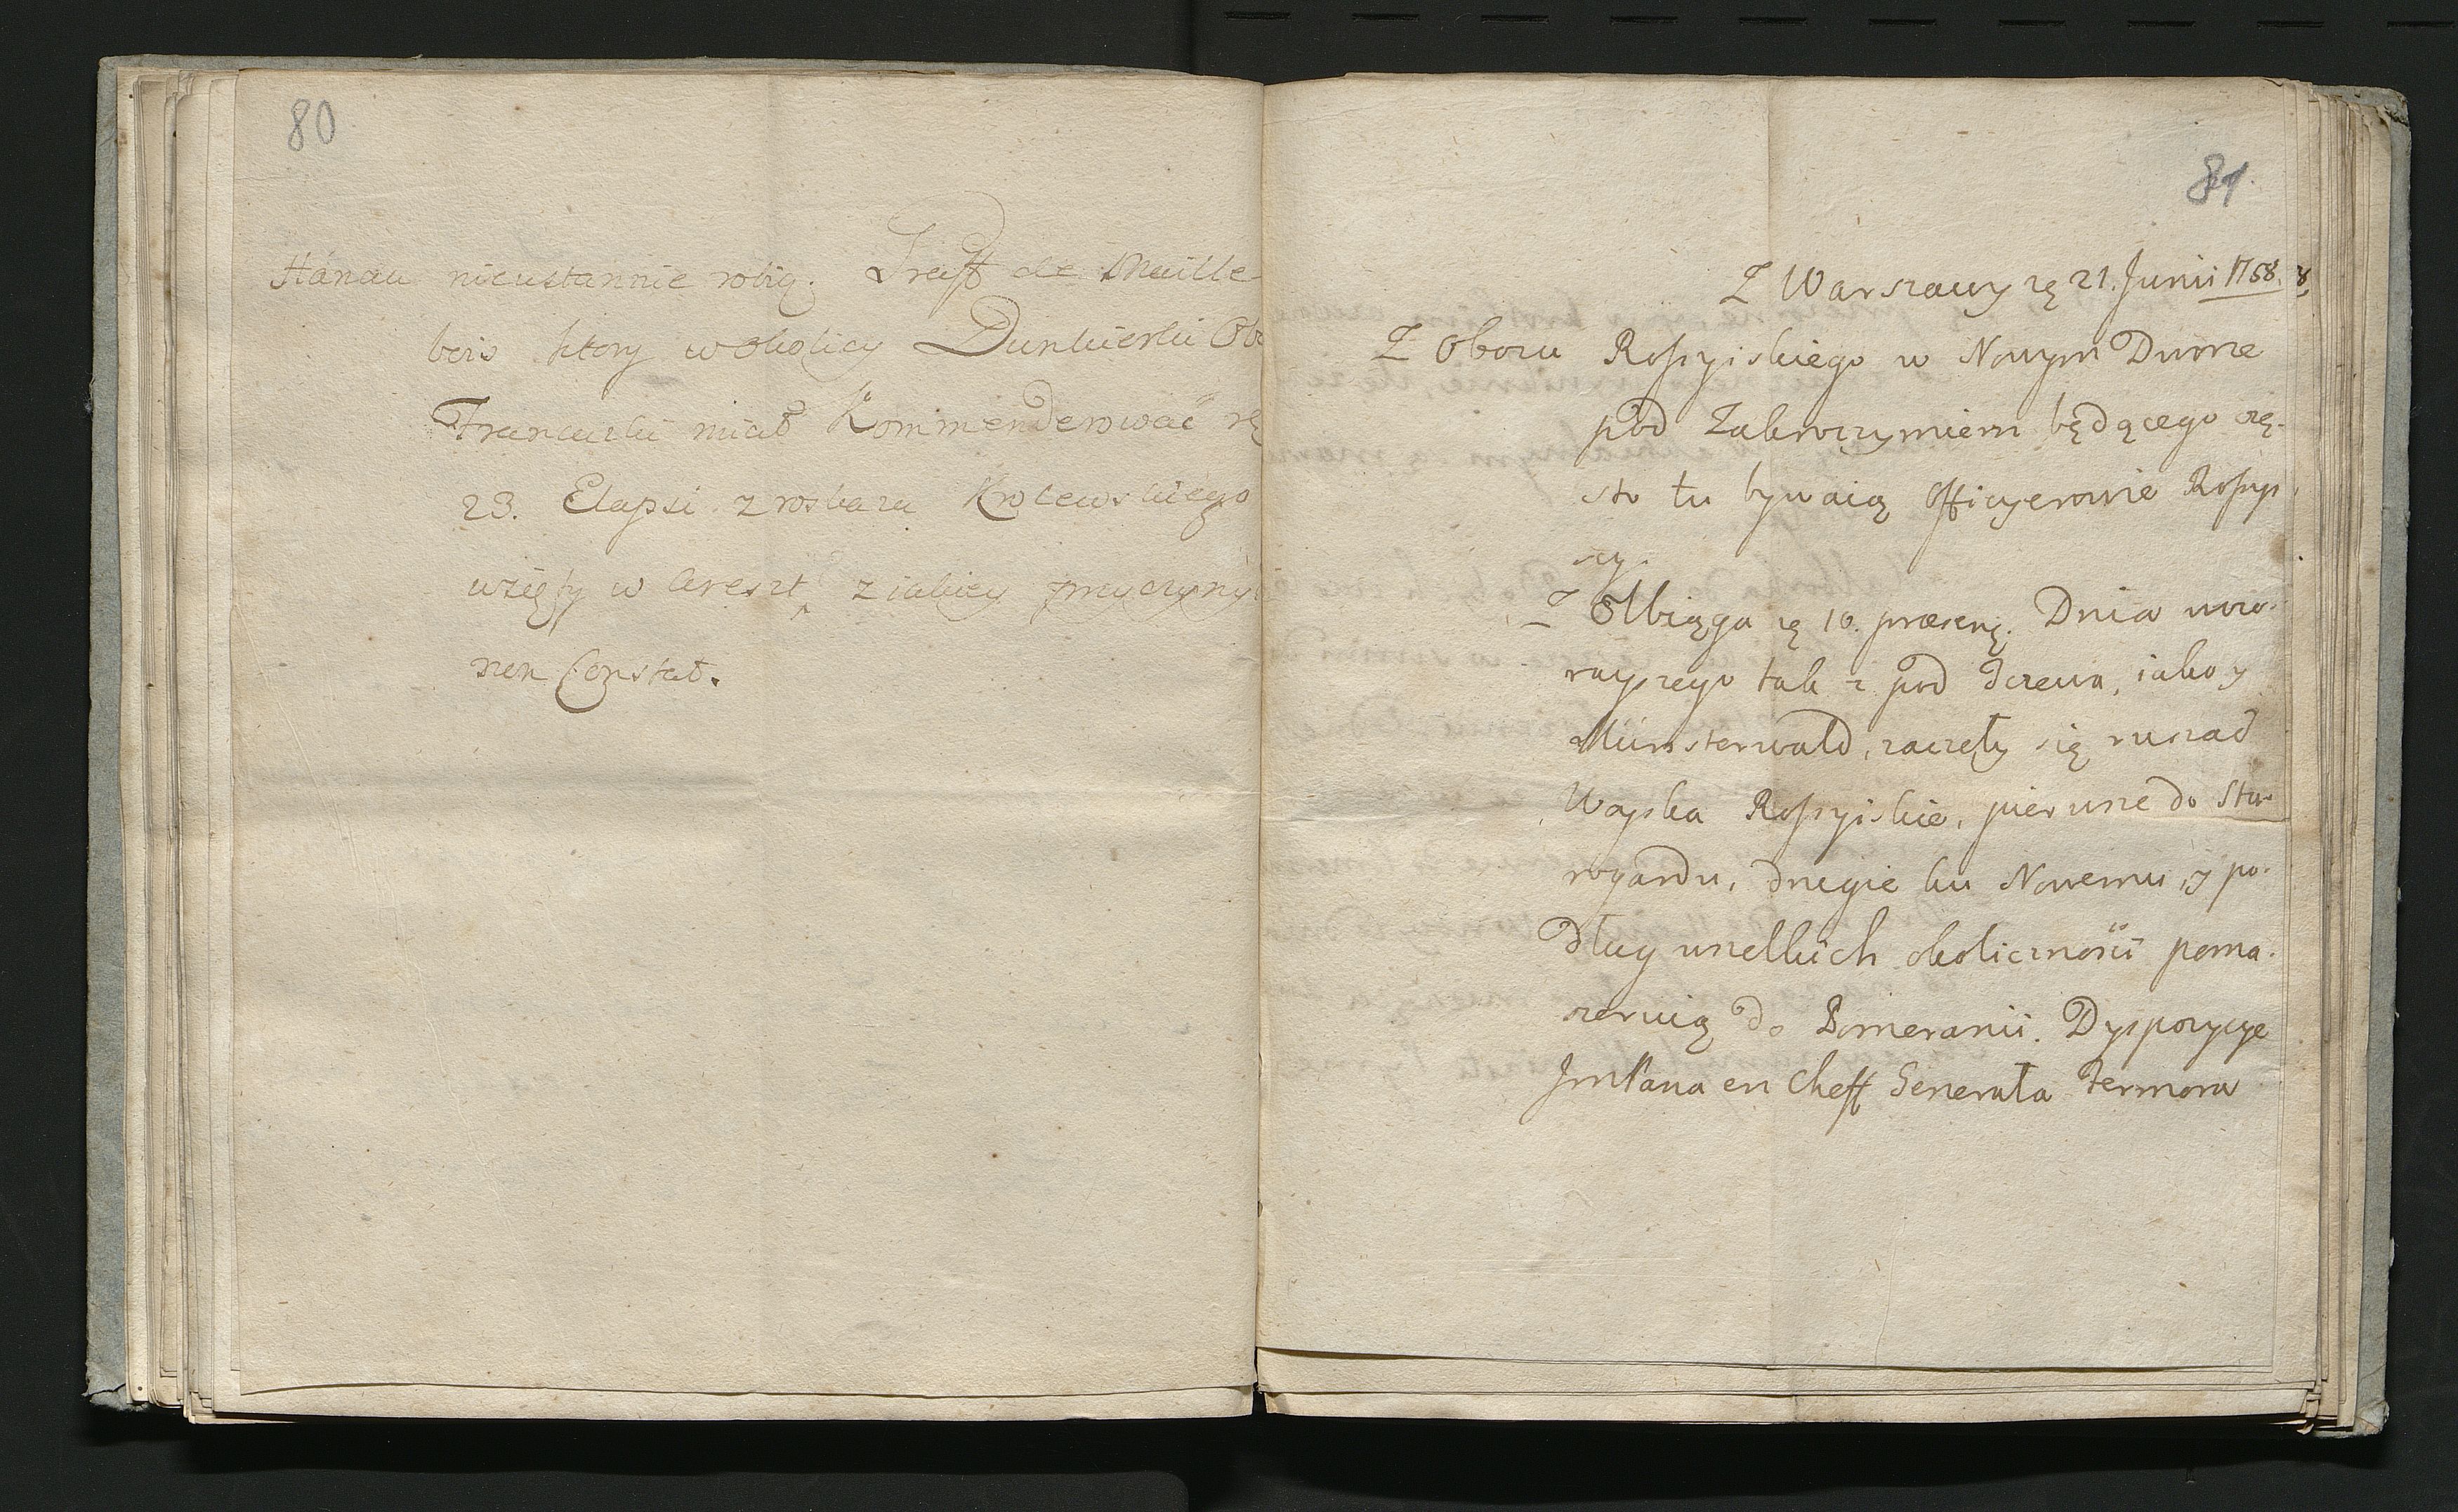 80
Hanau nieustannie robią. Graff de Maille
bois ktory w okolicy Dunkierki Obo
Francuski miał Kommenderować
23. Elapsi z roskazu Krolewskiego
wzięty w Areszt, z iakiey przyczyny
non Constat.
81
Z Warszawy 21. Junii 1758.
Z Obozu Rossyiskiego w Nowym Dworze
pod Zakroczymiem będącego czę-
sto tu bywaią Officyerowie Rossyi
scy.
Z Elbiąga 10. præsent. Dnia wczo-
rayszego tak z pod Tczewa, iako y
Münsterwald, zaczęły się ruszać
Woyska Rossyiskie, pierwsze do Sta-
rogardu, drugie ku Nowemu, y po-
dług wszelkich okolicznosci poma-
szeruią do Pomeranii. Dyspozycye
JmPana en Cheff Generała Fermora